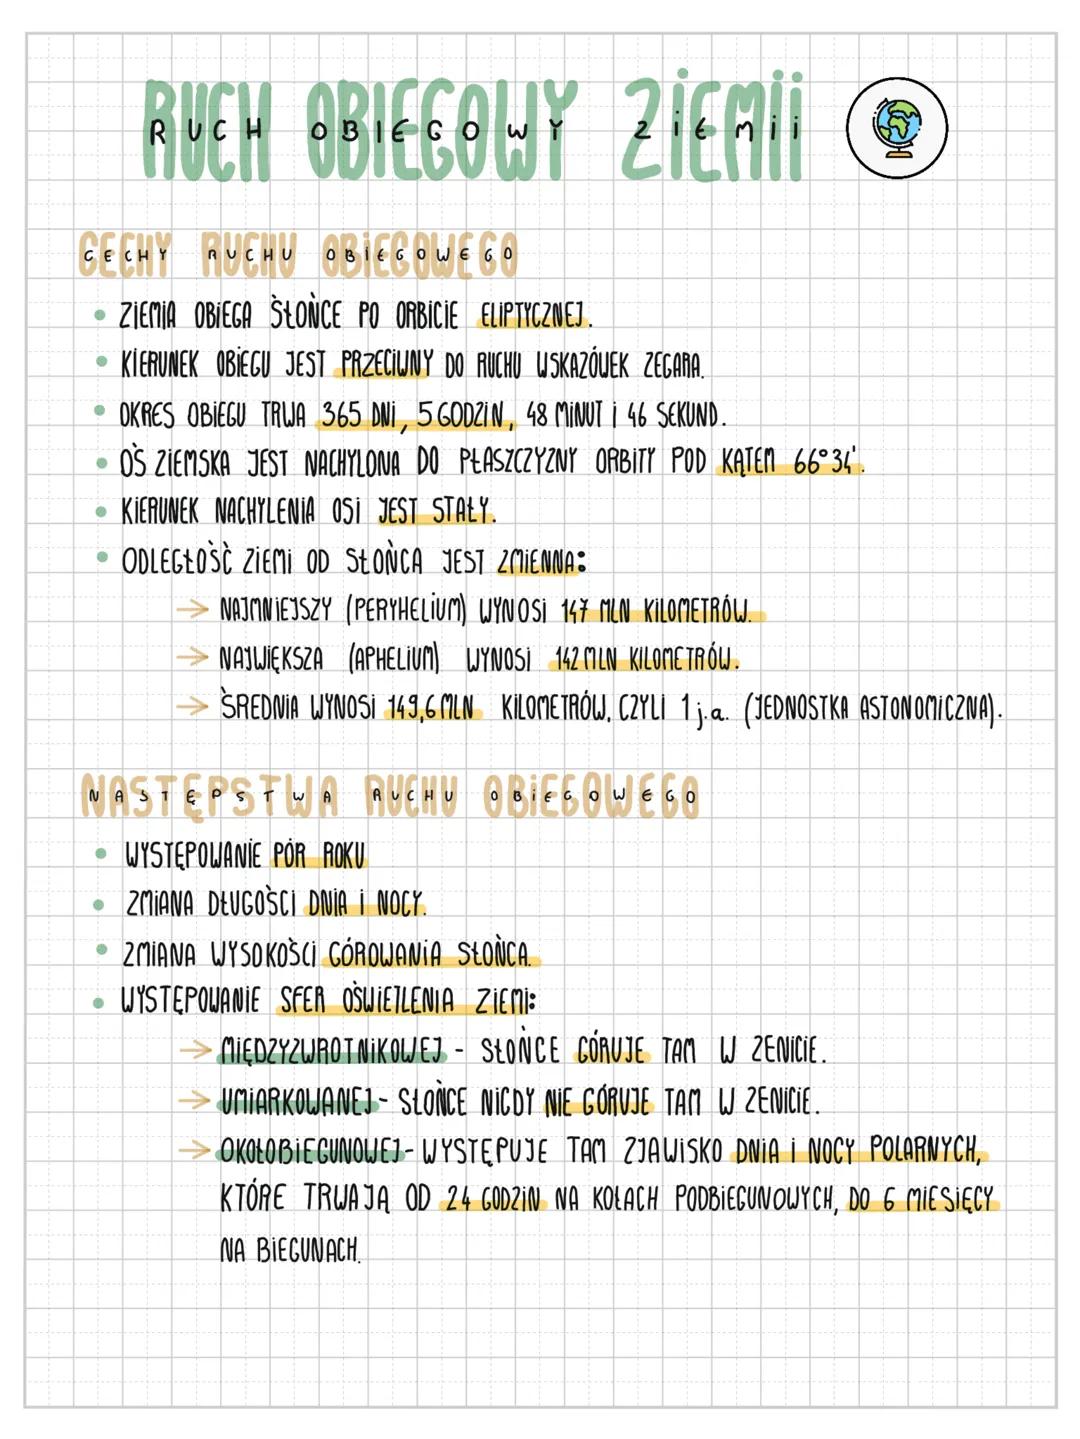 RUCH OBIEGOWY ZiEMii
CECHY RUCHU OBiEGOWEGO
• ZIEMIA OBIEGA SŁOŃCE PO ORBICIE ELIPTYCZNEJ.
• KIERUNEK OBIEGU JEST PRZECIWNY DO RUCHU WSKAZÓWEK ZEGARA.
• OKRES OBIEGU TRWA 365 DNi, 5 GODZIN, 48 MINUT i 46 SEKUND.
• OŚ ZIEMSKA JEST NACHYLONA DO PŁASZCZYZNY ORBITY POD KĄTEM 66°34'.
• KIERUNEK NACHYLENIA OSi JEST STAŁY.
• ODLEGŁOŚĆ ZIEMI OD SŁOŃCA JEST ZMIENNA:
→ NAJMNIEJSZY (PERYHELIUM) WYNOSi 147 MLN KILOMETRÓW.
→ NAJWIĘKSZA (APHELIUM) WYNOSi 142 MLN KILOMETRÓW.
→ ŚREDNIA WYNOSi 149,6 MLN KILOMETRÓW, CZYLI 1 j.a. (JEDNOSTKA ASTONOMICZNA).
NASTĘPSTWA RUCHU OBiEGOWEGO
• WYSTĘPOWANIE PÓR ROKU
• ZMIANA DŁUGOŚCI DNIA i NOCY.
• ZMIANA WYSOKOŚCI GÓROWANIA SŁOŃCA.
• WYSTĘPOWANIE SFER OŚWIETLENIA ZIEMI:
→ MIĘDZYZWROTNIKOWEJ - SŁOŃCE GÓRUJE TAM W ZENICIE.
→ UMIARKOWANEJ - SŁOŃCE NIGDY NIE GÓRUJE TAM W ZENICIE.
→ OKOŁOBIEGUNOWEJ - WYSTĘPUJE TAM ZJAWISKO DNIA i NOCY POLARNYCH,
KTÓRE TRWAJĄ OD 24 GODZIN NA KOŁACH PODBIEGUNOWYCH, DO 6 MIESIĘCY
NA BIEGUNACH.